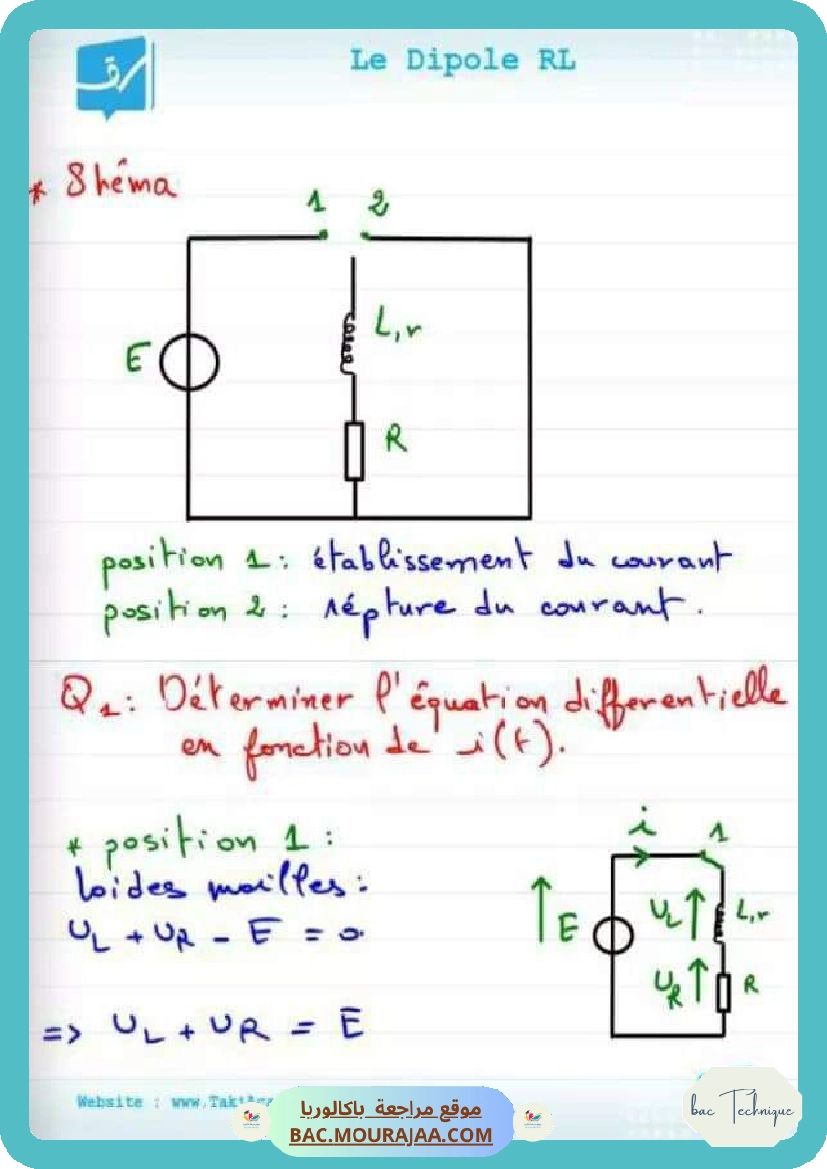 Le Dipole RL
* Shéma
1 2
L,r
E
R
position 1 : établissement du courant
position 2 : répture du courant.
Q1 : Déterminer l'équation differentielle
en fonction de i(t).
* position 1 :
loi des mailles :
UL + UR - E = 0
=> UL + UR = E
i 1
E UL L,r
UR R
Website : www.Tak
موقع مراجعة باكالوريا
BAC.MOURAJAA.COM
bac Technique